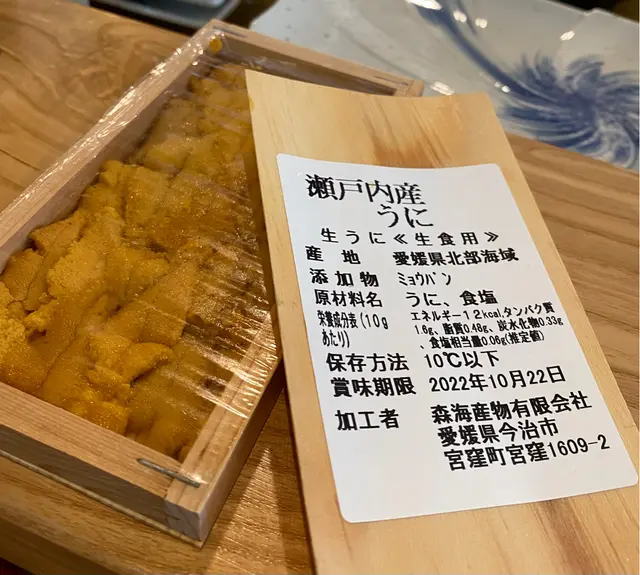 瀬戸内産
うに
生うに≪生食用≫
産地 愛媛県北部海域
添加物 ミョウバン
原材料名 うに、食塩
栄養成分表(10g
あたり)
エネルギー12kcal,タンパク質
1.6g、脂質0.48g、炭水化物0.33g
、食塩相当量0.06g(推定値)
保存方法 10℃以下
賞味期限 2022年10月22日
加工者 森海産物有限会社
愛媛県今治市
宮窪町宮窪1609-2